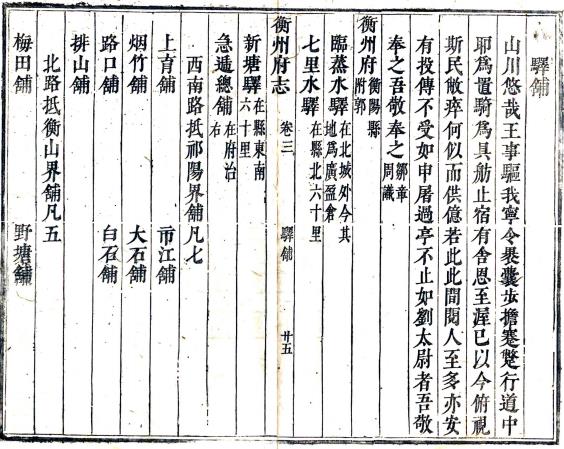 驛舖
山川悠哉王事驅我寧令裹囊步擔蹇蹩行道中
耶為置騎為具舫止宿有舍恩至渥巳以今俯視
斯民敝瘁何似而供億若此此間閱人至多亦安
有投傳不受如申屠過亭不止如劉太尉者吾敬
奉之吾敬奉之鄒章周識
衡州府衡陽縣附郭
臨蒸水驛在北城外今其地為廣盈倉
七里水驛在縣北六十里
衡州府志 卷三 驛舖 廿五
新塘驛在縣東南六十里
急遞總舖在府治右
西南路抵祁陽界舖凡七
上育舖 市江舖
烟竹舖 大石舖
路口舖 白石舖
排山舖
北路抵衡山界舖凡五
梅田舖 野塘舖